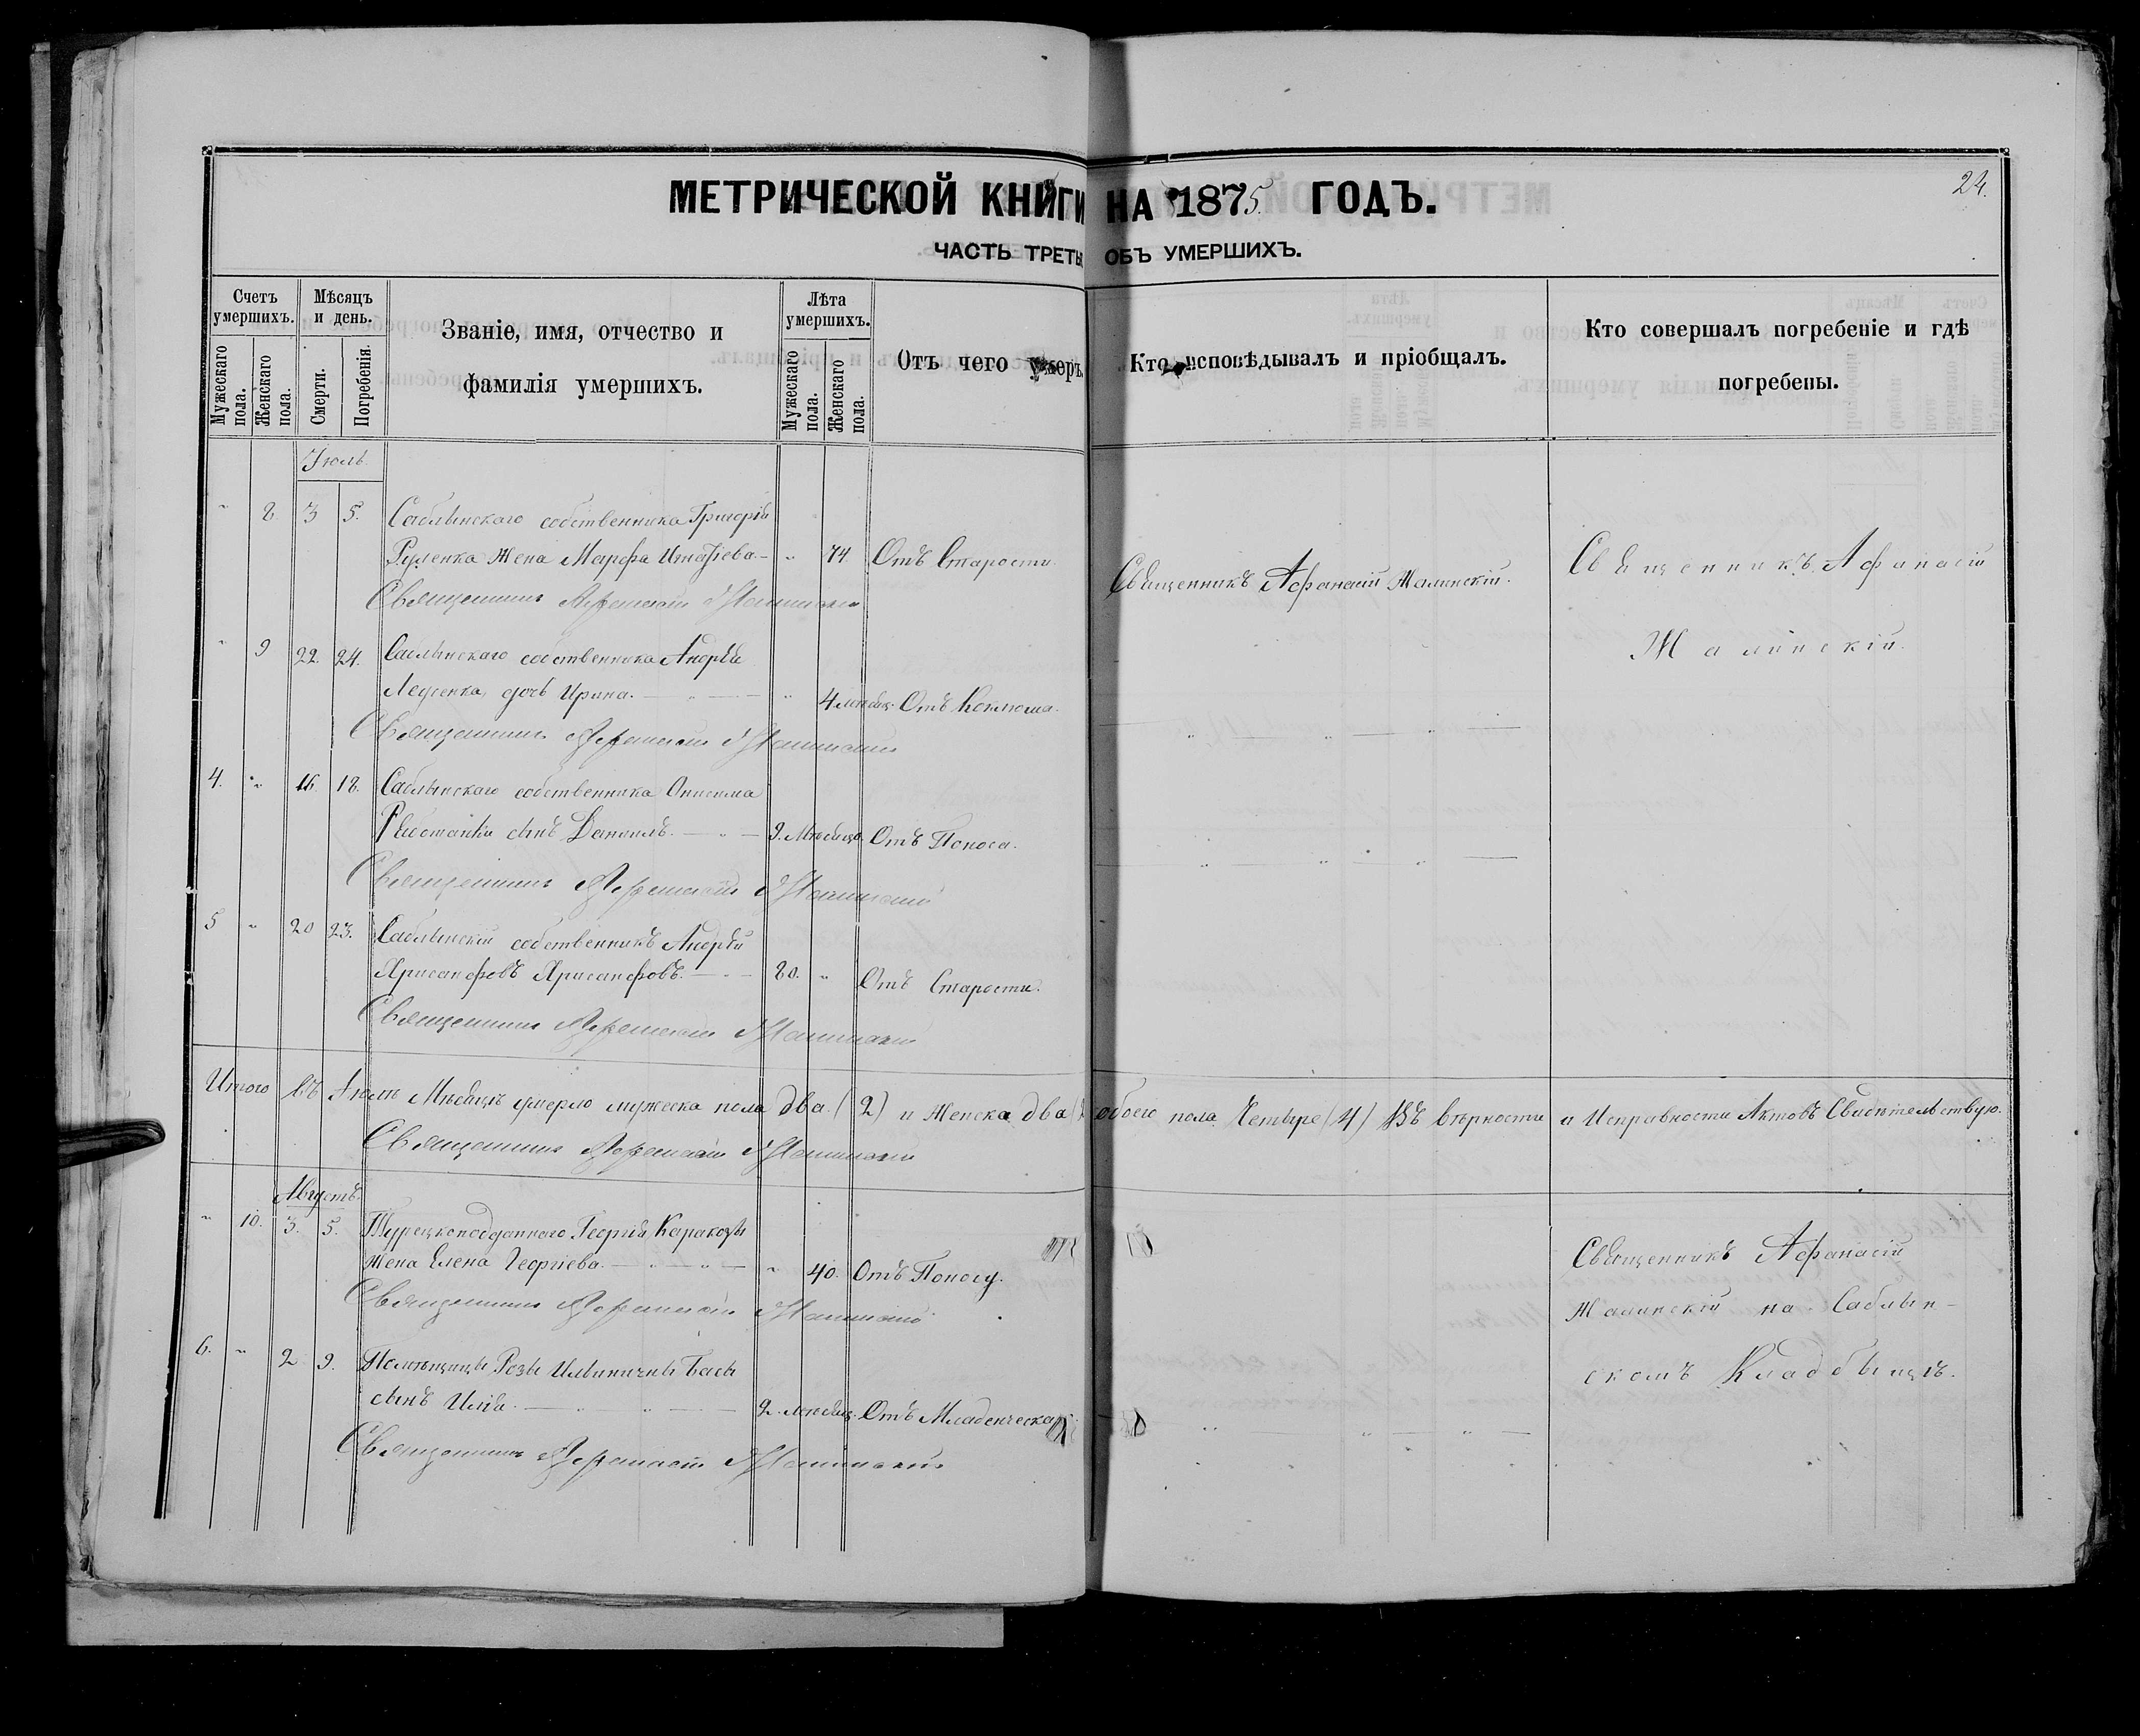 МЕТРИЧЕСКОЙ КНИГИ НА 1875 ГОДЪ.
24.
ЧАСТЬ ТРЕТЬ ОБЪ УМЕРШИХЪ.
Счетъ умершихъ.
Мужескаго пола.
Женскаго пола.
Мѣсяцъ и день.
Смерти.
Погребенія.
Званіе, имя, отчество и
фамилія умершихъ.
Лѣта умершихъ.
Мужескаго пола.
Женскаго пола.
Отъ чего умеръ
Кто исповѣдывалъ и пріобщалъ.
Кто совершалъ погребеніе и гдѣ
погребены.
Іюль
" 8. 3 5. Саблынскаго собственника Григорія
жена Марфа Игнатіева " 74 Отъ Старости.
Священникъ Афанасій Жалинскій.
Священникъ Афанасій Жалинскій.
Священникъ Афанасій
Жалинскій.
" 9 22. 24. Саблынскаго собственника Андрѣя
дочь Ирина. " 4 мѣсяц. Отъ Коклюша.
Священникъ Афанасій Жалинскій
4. " 16. 18. Саблынскаго собственника Онисима
сынъ Даніилъ. 9. Мѣсяцъ. Отъ Поноса.
Священникъ Афанасій Жалинскій
5 " 20 23. Саблынскій собственникъ Андрѣй
Хрисанфовъ Хрисанфовъ. 80. " Отъ Старости.
Священникъ Афанасій Жалинскій
Итого въ Іюлѣ Мѣсяцѣ умерло мужеска пола два (2) и Женска два (2 обоего пола Четыре (4) Въ вѣрности и Исправности Актовъ Свидѣтельствую.
Священникъ Афанасій Жалинскій
Августъ
" 10. 3. 5. Турецкоподданнаго Георгія
Жена Елена Георгіева. " 40. Отъ Поносу.
Священникъ Афанасій Жалинскій
Священникъ Афанасій
Жалинскій на Саблын-
скомъ Кладбищѣ.
6. " 2 9. Помѣщицы Розы Ильиничны
сынъ Илія. 9. мѣсяц. Отъ Младенческа
Священникъ Афанасій Жалинскій